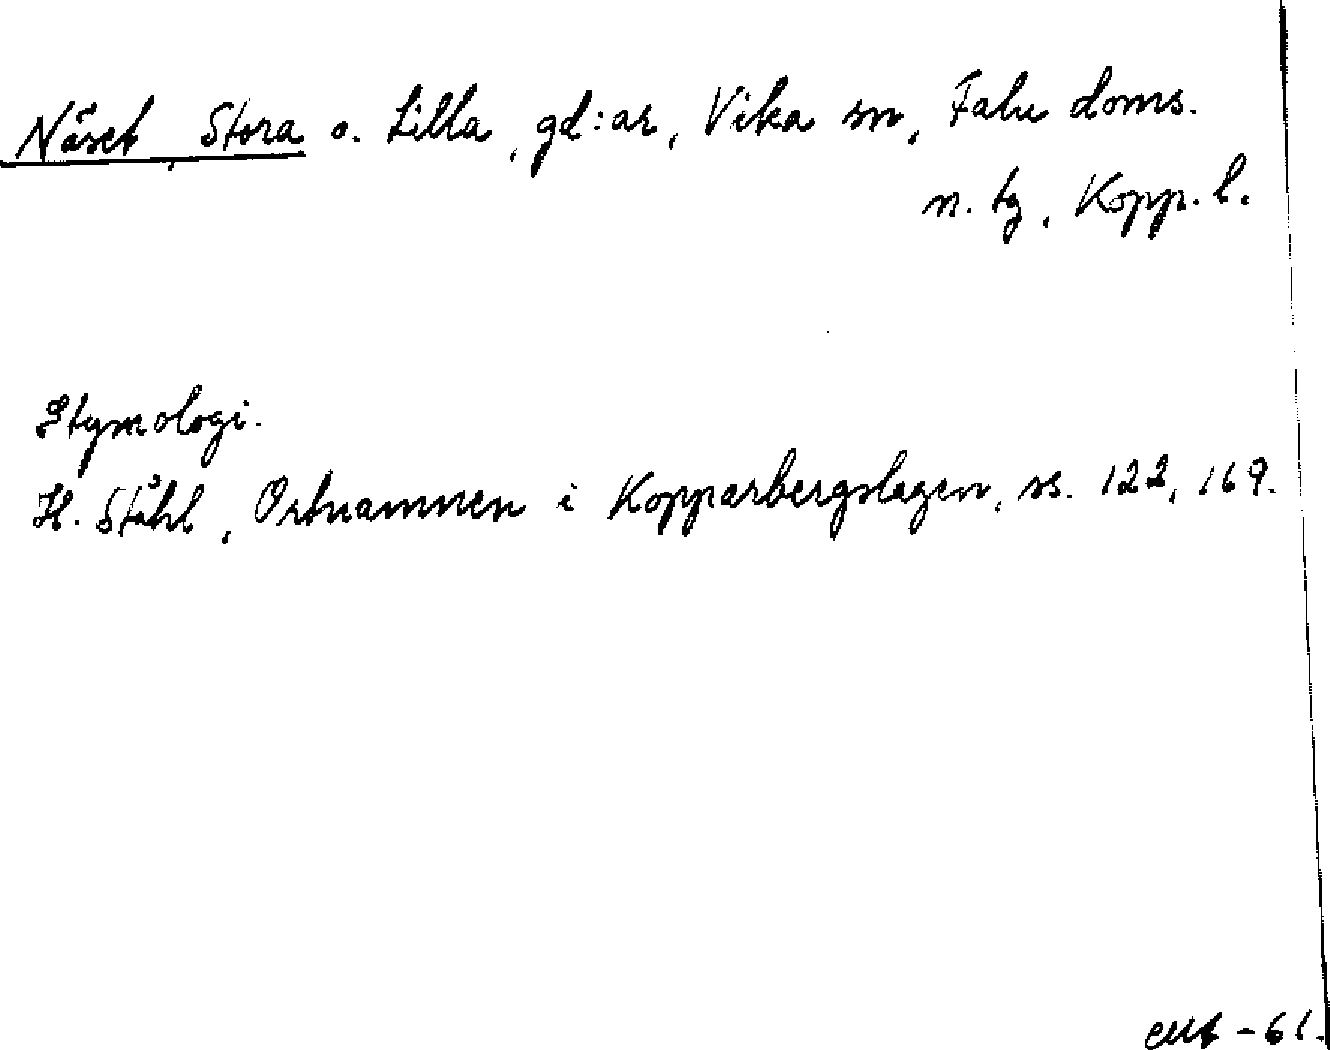 Näset, Stora o. Lilla, gd:ar, Vika sn, Falu doms.
n. tg, Kopp. l.
Etymologi.
H. Ståhl, Ortnamnen i Kopparbergslagen, ss. 122, 169.
-61.